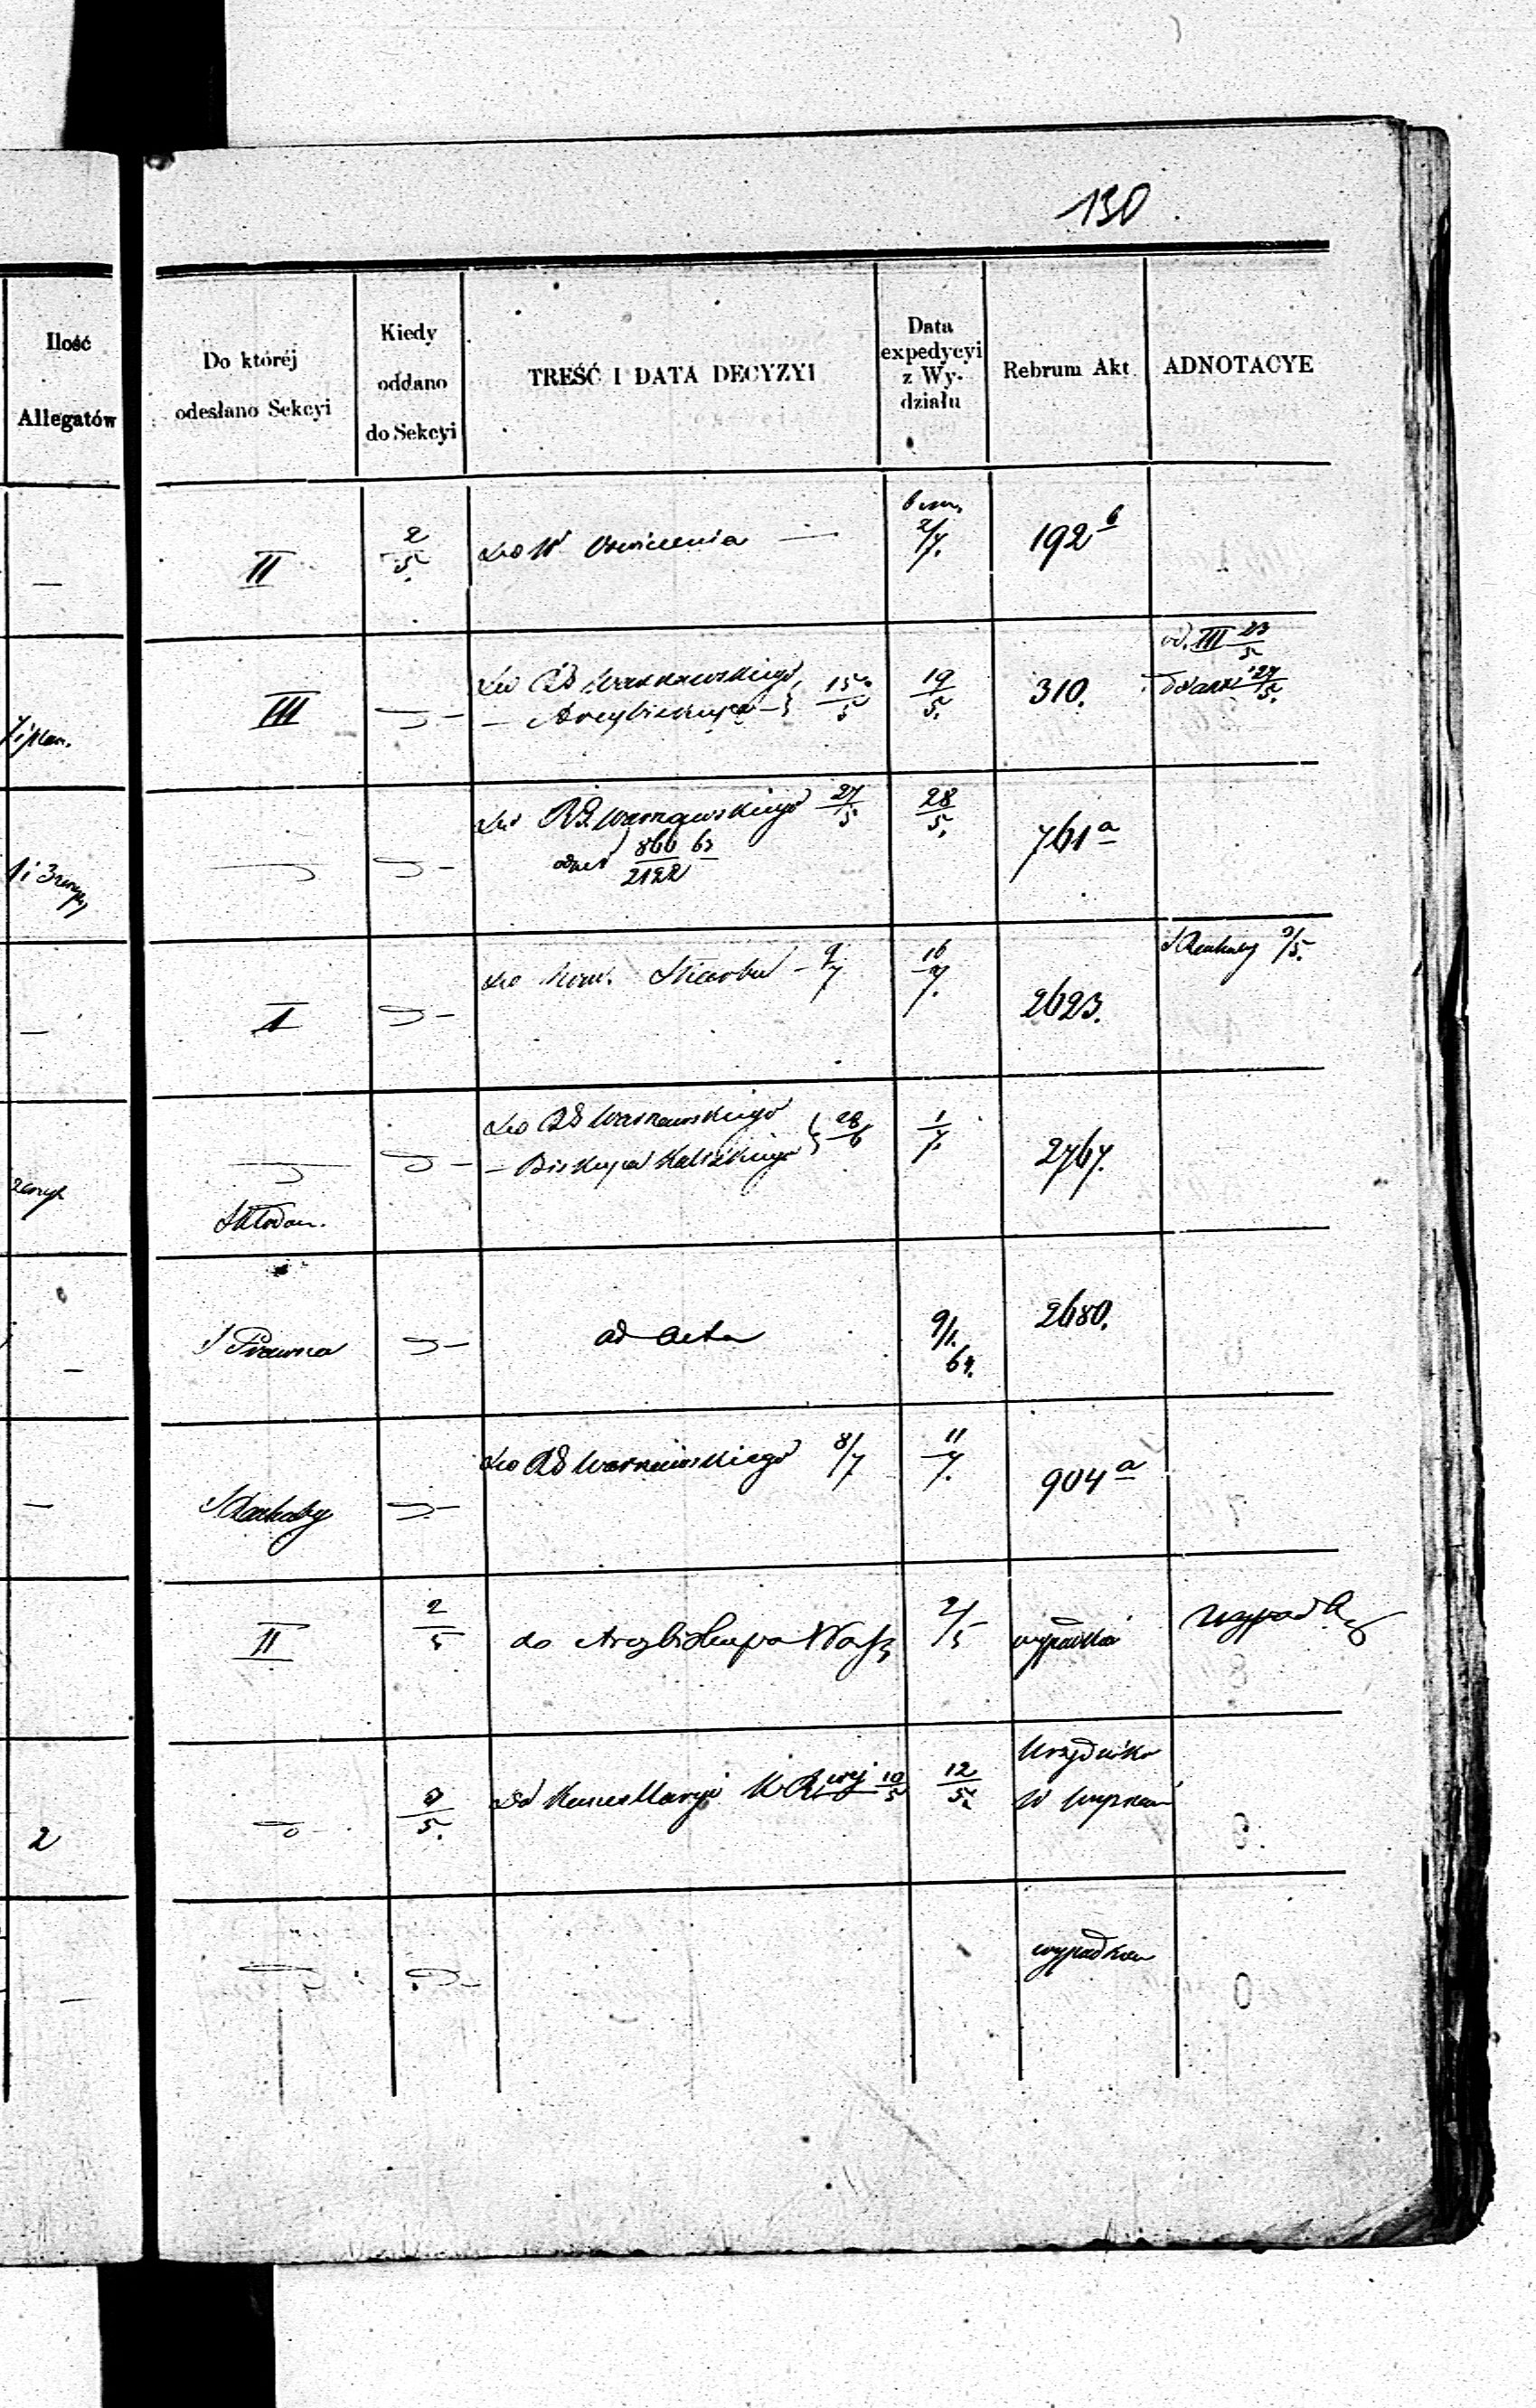 130
Ilość
Allegatów
Do któréj
odesłano Sekcyi
Kiedy
oddano
do Sekcyi
TREŚĆ I DATA DECYZYI
Data
expedycyi
z Wy-
działu
Rebrum Akt
ADNOTACYE
II
2/5
do W Oswiecenia —
2/7.
192 b
III
do RG Warszawskiego
— Arcybiskupa — } 15/5
19/5.
310.
od. III 23/5
do akt 27/5.
do RG Warszawskiego 27/5
866 63
2122
28/5.
761 a
I
do Kom. Skarbu — 9/7
16/7.
2623.
S Rachuby 9/5.
do RG Warszawskiego
— Biskupa Kaliskiego } 28/6
1/7.
2767.
Skłodow.
S Prawna
ad acta
9/1.
64.
2680.
S Rachuby
do RG Warszawskiego 8/7
11/7.
904 a
II
2/5
do Arcybiskupa Warsz
2/5
wypadki
2
3/5.
Do Kancellaryi 10/5
12/5.
wypadków